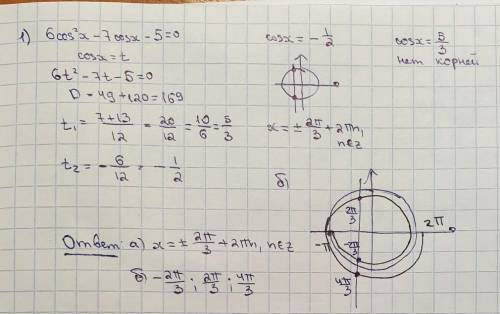 1) 6cos²x - 7cosx - 5 = 0
cosx = t
6t² - 7t - 5 = 0
D = 49 + 120 = 169
t₁ = 7+13/12 = 20/12 = 10/6 = 5/3
t₂ = -6/12 = -1/2
cosx = -1/2
x = ± 2π/3 + 2πn,
n∈z
cosx = 5/3
нет корней
б)
2π/3
2π
-π
-2π/3
4π/3
Ответ: а) x = ± 2π/3 + 2πn, n∈z
б) -2π/3 ; 2π/3 ; 4π/3